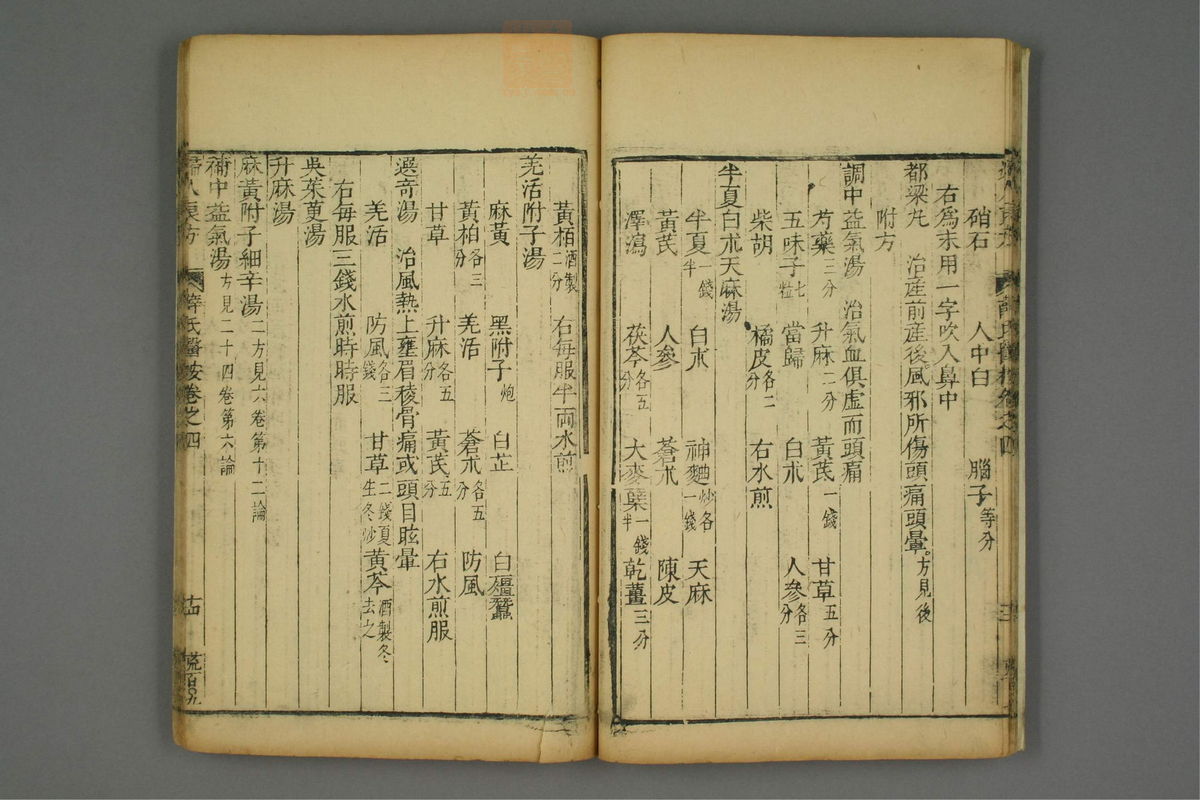 硝石 人中白 腦子等分
右為末用一字吹入鼻中
都梁丸 治産前産後風邪所傷頭痛頭暈。方見後
附方
調中益氣湯 治氣血俱虛而頭痛
芍藥三分 升麻二分 黃芪一錢 甘草五分
五味子七粒 當歸 白朮 人參各三分
柴胡 橘皮各二分 右水煎
半夏白朮天麻湯
半夏一錢半 白朮 神麯炒各一錢 天麻
黃芪 人參 蒼朮 陳皮
澤瀉 茯苓各五分 大麥糵一錢半 乾薑三分
黃栢酒製二分 右每服半両水煎
羌活附子湯
麻黃 黑附子炮 白芷 白殭蠶
黃柏各三分 羌活 蒼朮各五分 防風
甘草 升麻各五分 黃芪五分 右水煎服
選奇湯 治風熱上壅眉稜骨痛或頭目眩暈
羌活 防風各三錢 甘草二錢夏生冬炒 黃芩酒製冬去之
右每服三錢水煎時時服
吳茱萸湯
升麻湯
麻黃附子細辛湯二方見六卷第十二論
補中益氣湯方見二十四卷第六論
婦人良方 薛氏醫按卷之四 十四